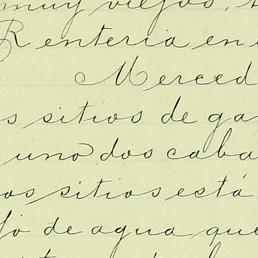 muy viejos,
Renteria en
Merced
s sitios de ga
uno dos caba
os sitios está
jo de agua que